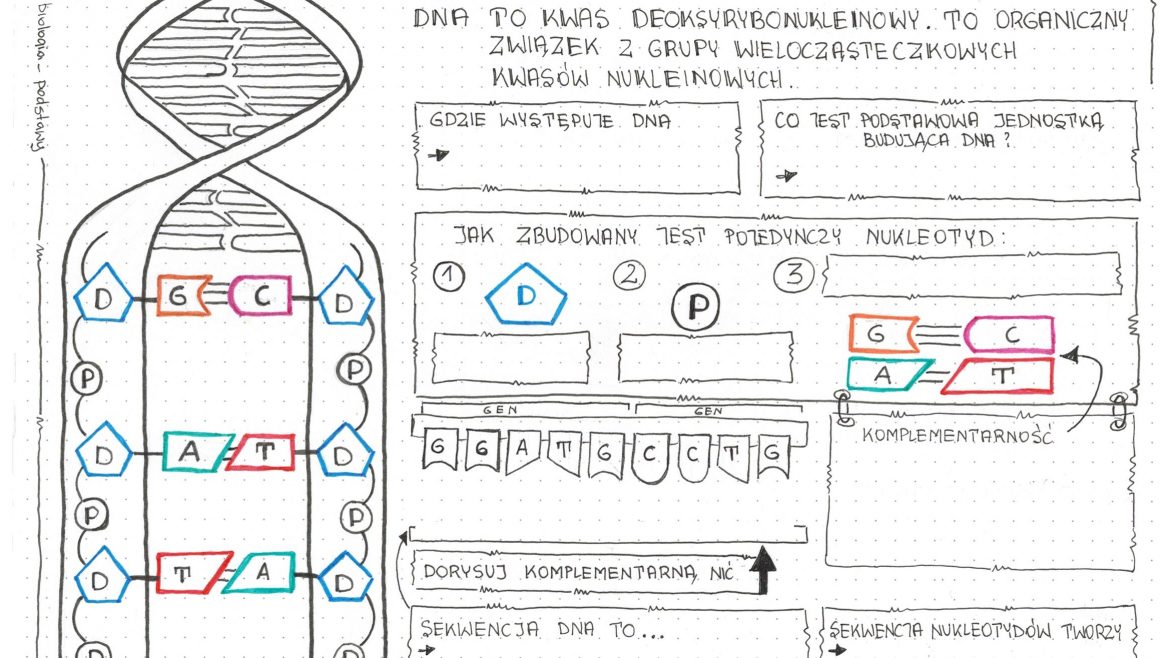 biologia - podstawy
DNA TO KWAS DEOKSYRYBONUKLEINOWY. TO ORGANICZNY
ZWIĄZEK Z GRUPY WIELOCZĄSTECZKOWYCH
KWASÓW NUKLEINOWYCH.
GDZIE WYSTĘPUJE DNA
CO JEST PODSTAWOWĄ JEDNOSTKĄ
BUDUJĄCĄ DNA?
JAK ZBUDOWANY JEST POJEDYNCZY NUKLEOTYD:
1 D
2 P
3
G C
A T
D G C D
P P
D A T D
P P
D T A D
P P
GEN GEN
G G A T G C C T G
KOMPLEMENTARNOŚĆ
DORYSUJ KOMPLEMENTARNĄ NIĆ
SEKWENCJA DNA TO...
SEKWENCJA NUKLEOTYDÓW TWORZY